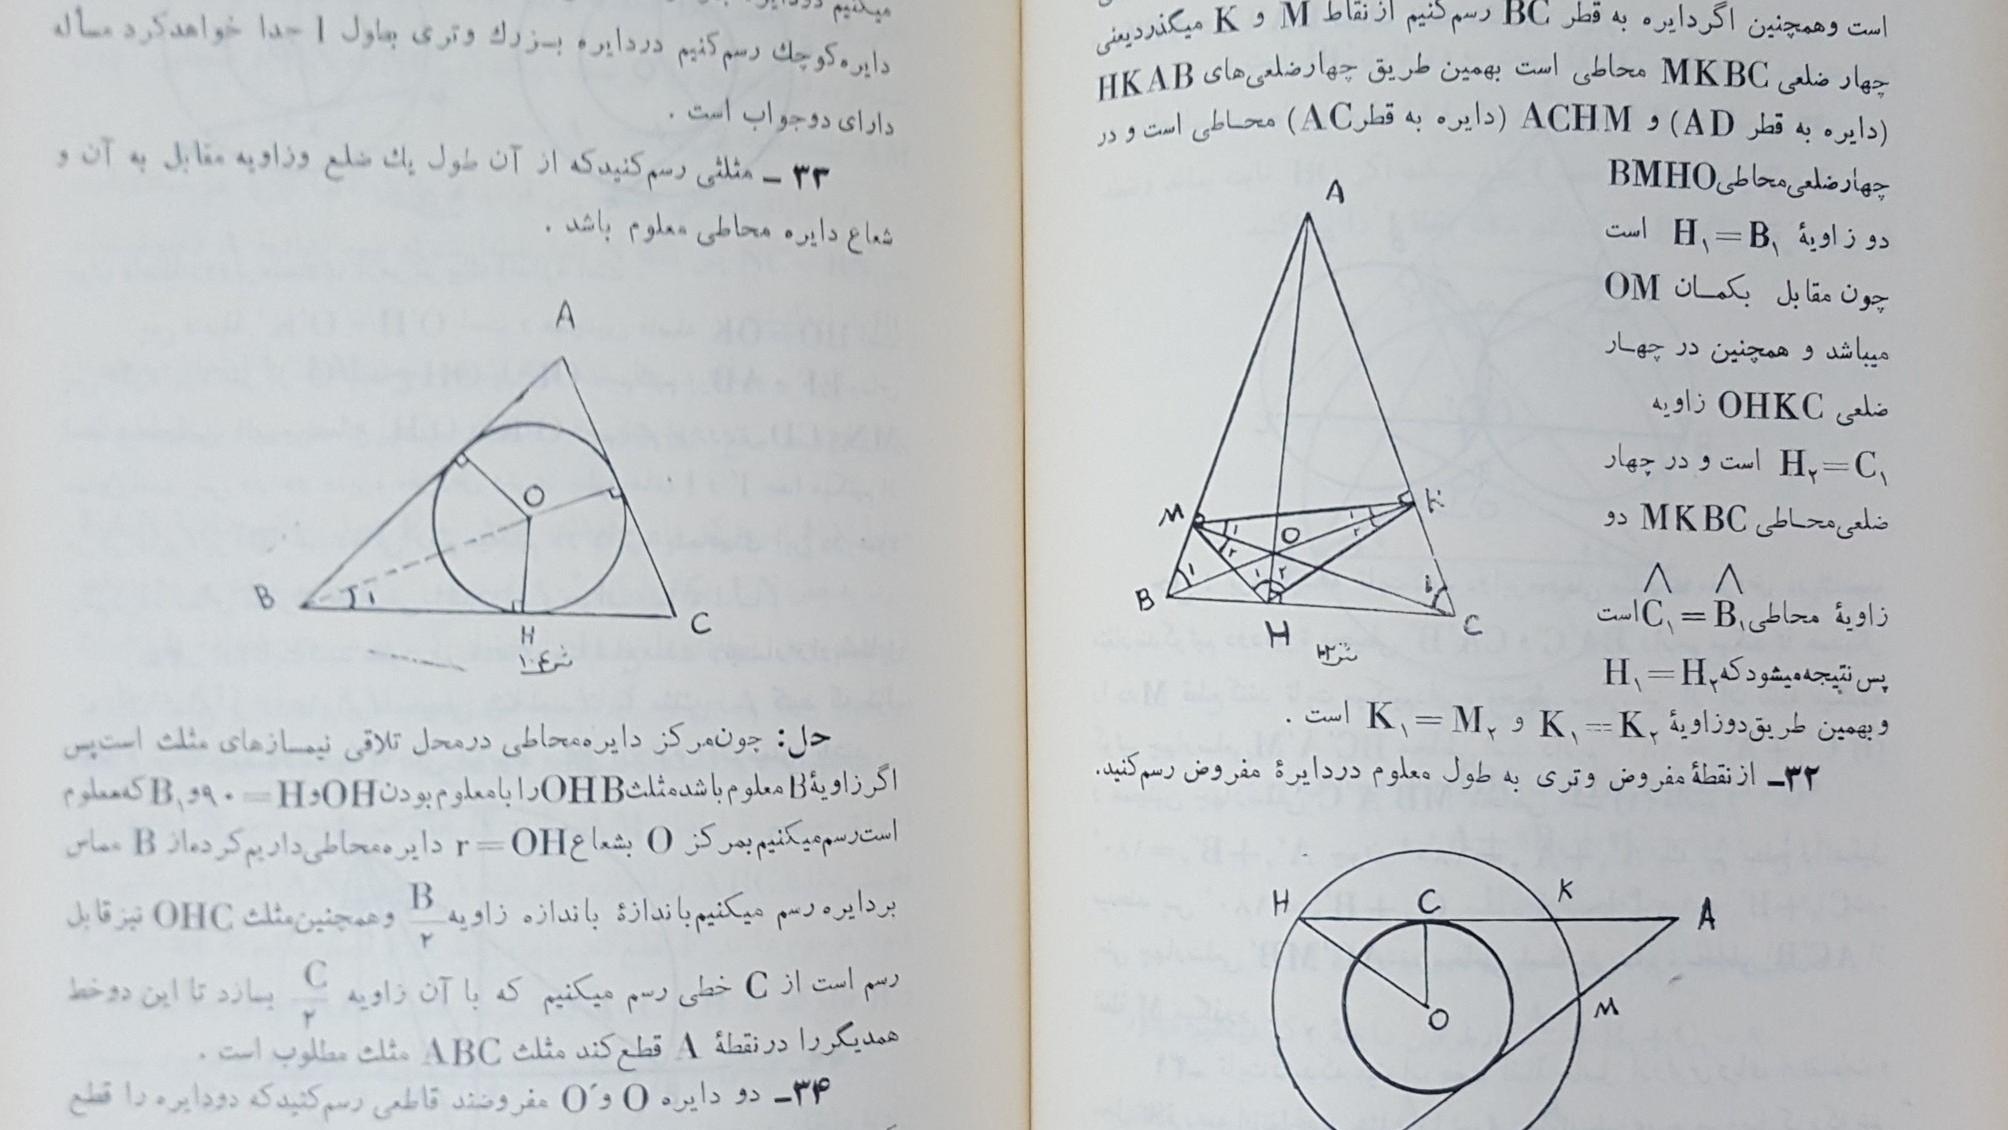 است وهمچنین اگردایره به قطر BC رسم‌کنیم ازنقاط M و K میگذردیعنی
چهار ضلعی MKBC محاطی است بهمین طریق چهارضلعی‌های HKAB
(دایره به قطر AD) و ACHM (دایره به قطرAC) محـاطی است و در
چهارضلعی‌محاطیBMHO
دو زاویهٔ H۱=B۱ است
چون مقابل بکمـان OM
میباشد و همچنین در چهـار
ضلعی OHKC زاویه
H۲=C۱ است و در چهار
ضلعی‌محـاطی MKBC دو
زاویهٔ محاطیC۱=B۱است
پس‌نتیجه‌میشودکهH۱=H۲
وبهمین طریق‌دوزاویهٔ K۱=K۲ و K۱=M۲ است .
A
M
O
K
۱
۱
۲
۲
B
۱
۱
۲
۱
C
H
ش۱۰۲
۳۲ــ ازنقطهٔ مفروض وتری به طول معلوم دردایرهٔ مفروض رسم‌کنید.
H
C
K
A
O
M
دایره‌کوچك رسم‌کنیم دردایره بـزرك وتری بطول l جدا خواهدکرد مسأله
دارای دوجواب است .
۳۳ ــ مثلثی رسم‌کنیدکه از آن طول یك ضلع وزاویه مقابل به آن و
شعاع دایره محاطی معلوم باشد .
A
O
B
۱
H
C
ش۱۰۴
حل: چون‌مرکز دایره‌محاطی درمحل تلاقی نیمسازهای مثلث است‌پس
اگرزاویهٔB معلوم باشدمثلثOHBرا بامعلوم‌بودنOHوH=۹۰وB۱که‌معلوم
است‌رسم‌میکنیم‌بمرکز O بشعاعr=OH دایره‌محاطی‌داریم‌کرده‌از B مماس
بردایره رسم میکنیم‌باندازهٔ باندازه زاویه B/۲ وهمچنین‌مثلث OHC نیزقابل
رسم است از C خطی رسم میکنیم که با آن زاویه C/۲ بسازد تا این دوخط
همدیگررا درنقطهٔ A قطع‌کند مثلث ABC مثلث مطلوب است .
۳۴ــ دو دایره O وO′ مفروضند قاطعی رسم‌کنیدکه دودایره را قطع